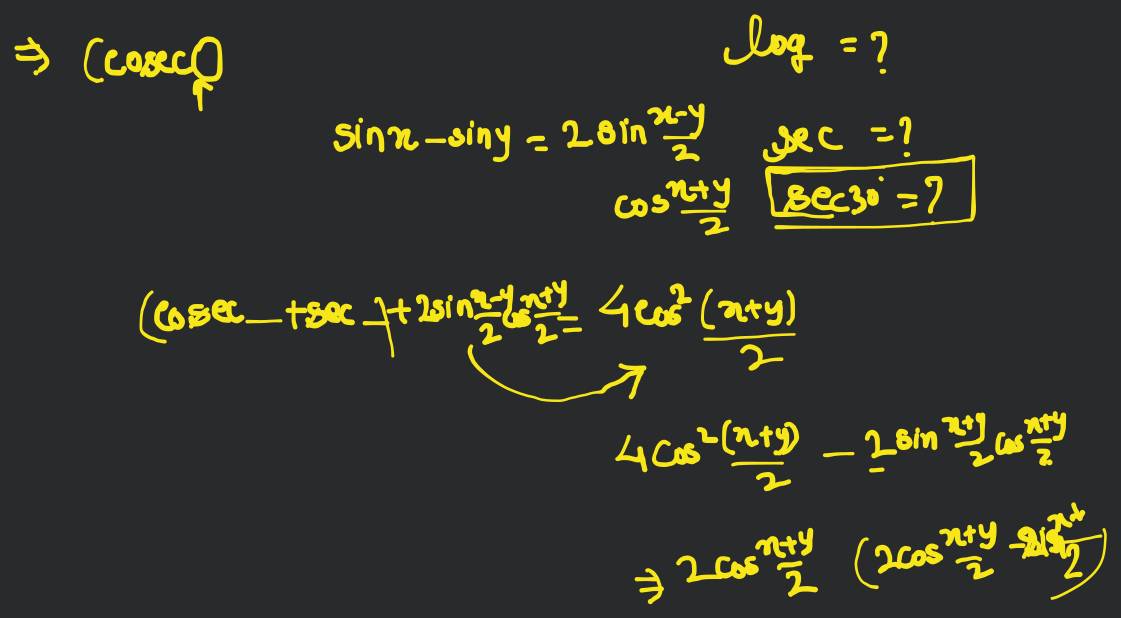 ⇒ (cosec()
log = ?
sinx - siny = 2 sin (x-y)/2
cos (x+y)/2
sec = ?
sec30° = ?
(cosec _ + sec _) + 2sin (x-y)/2 cos (x+y)/2 = 4cos² (x+y)/2
4cos² (x+y)/2 - 2 sin (x+y)/2 cos (x+y)/2
⇒ 2cos (x+y)/2 (2cos (x+y)/2 - sin (x+)/2)